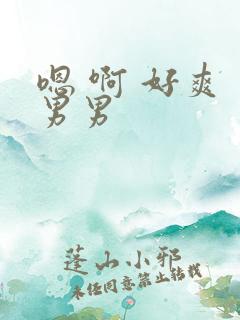 嗯 啊 好爽
男男
蓬山小邪
未经同意禁止转载